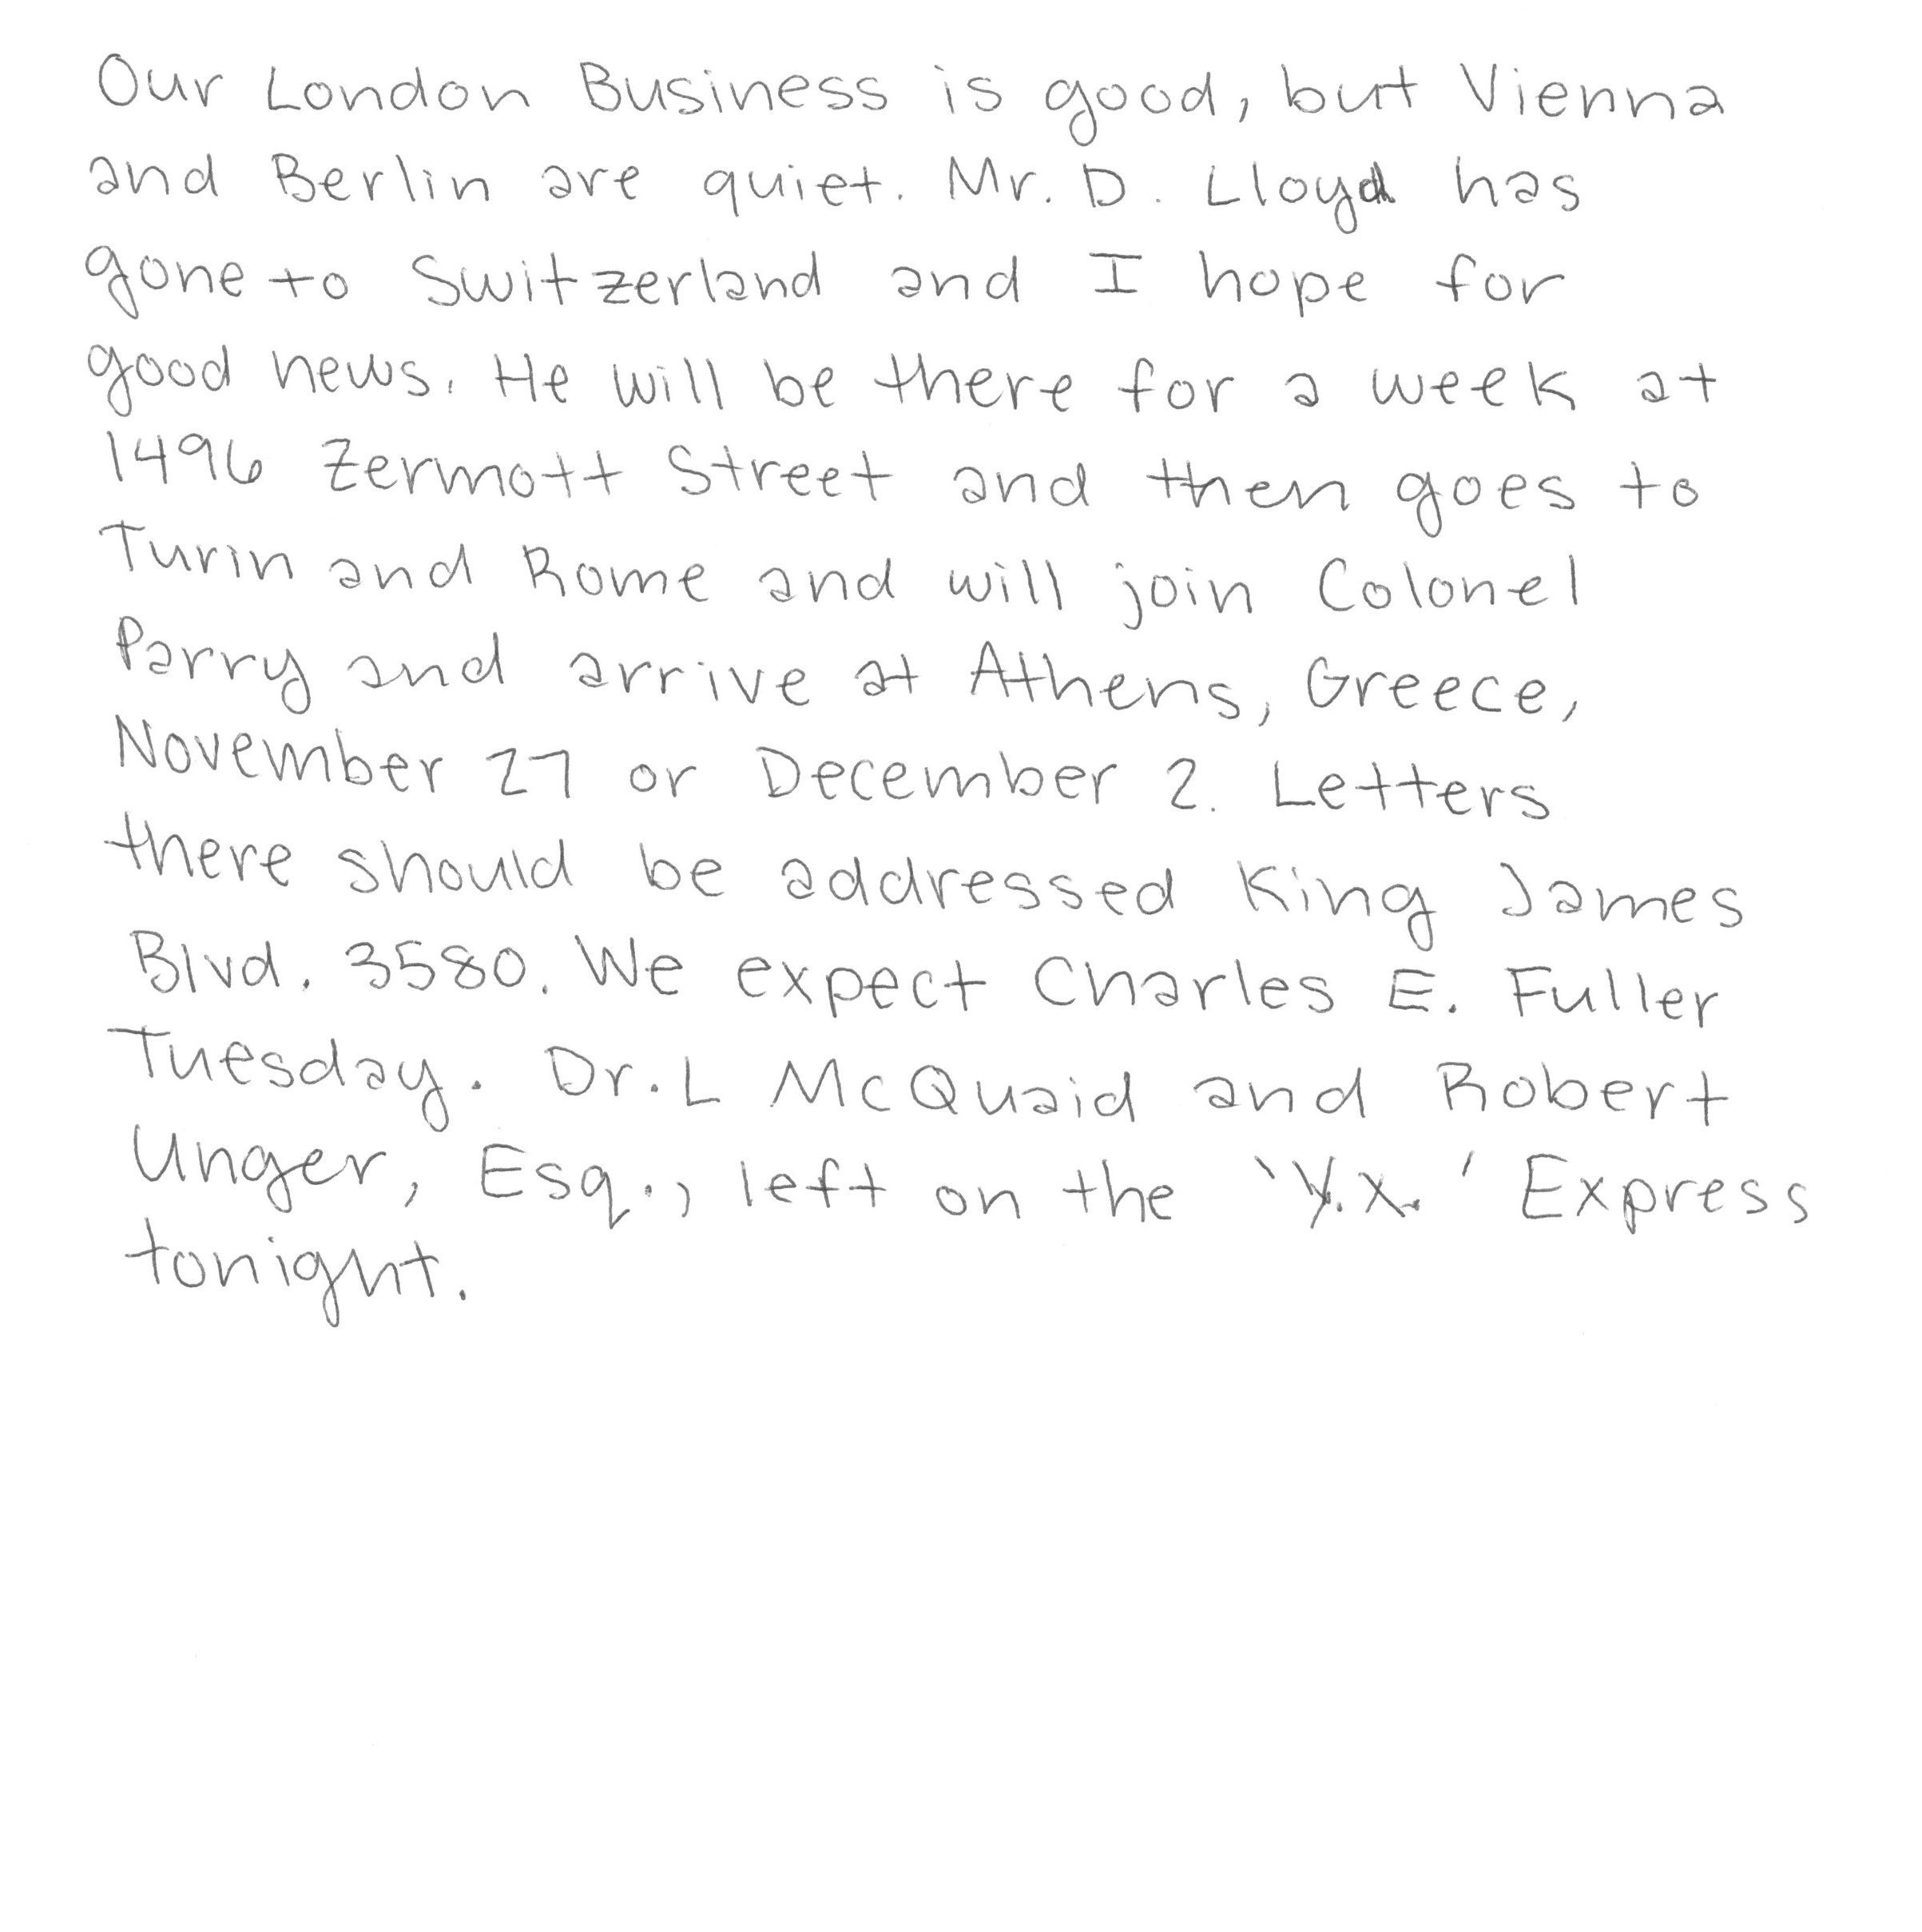 Our London Business is good, but Vienna
and Berlin are quiet. Mr. D. Lloyd has
gone to Switzerland and I hope for
good news. He will be there for a week at
1496 Zermott Street and then goes to
Turin and Rome and will join Colonel
Parry and arrive at Athens, Greece,
November 27 or December 2. Letters
there should be addressed King James
Blvd. 3580. We expect Charles E. Fuller
Tuesday. Dr. L McQuaid and Robert
Unger, Esq., left on the 'Y.X.' Express
tonight.